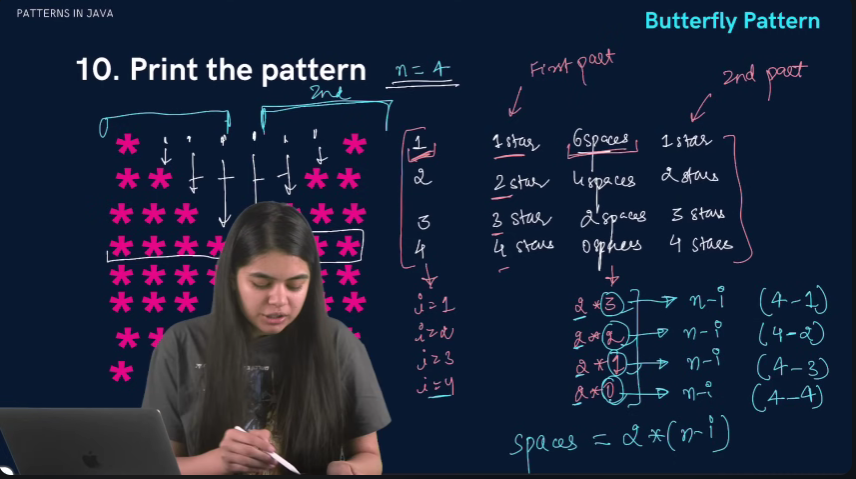 PATTERNS IN JAVA
Butterfly Pattern
10. Print the pattern
n = 4
2nd
First part
2nd part
1 1 star 6 spaces 1 star
2 2 star 4 spaces 2 stars
3 3 star 2 spaces 3 stars
4 4 stars 0 spaces 4 stars
i=1 2 * 3 n-i (4-1)
i=2 2 * 2 n-i (4-2)
i=3 2 * 1 n-i (4-3)
i=4 2 * 0 n-i (4-4)
spaces = 2 * (n-i)